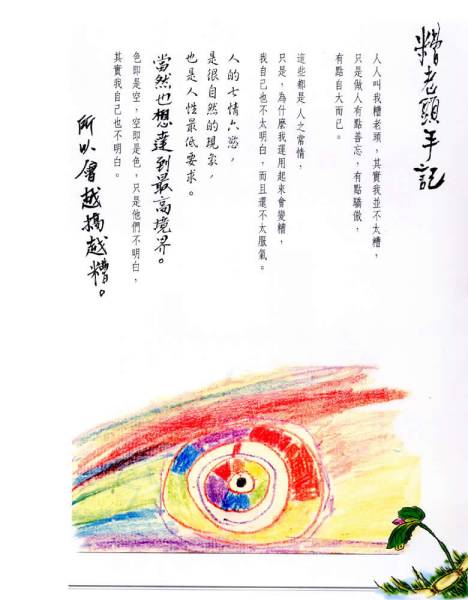 糟老頭手記
人人叫我糟老頭，其實我並不太糟，
只是做人有點善忘，有點驕傲，
有點自大而已。
這些都是人之常情，
只是，為什麼我運用起來會變糟，
我自己也不太明白，而且還不太服氣。
人的七情六慾，
是很自然的現象，
也是人性最低要求。
當然也想達到最高境界。
色即是空，空即是色，只是他們不明白，
其實我自己也不明白。
所以會越搞越糟。